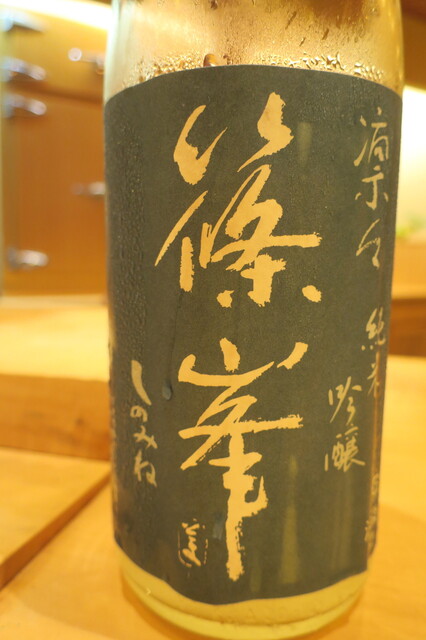 凛々 純米
吟醸
篠峯
しのみね